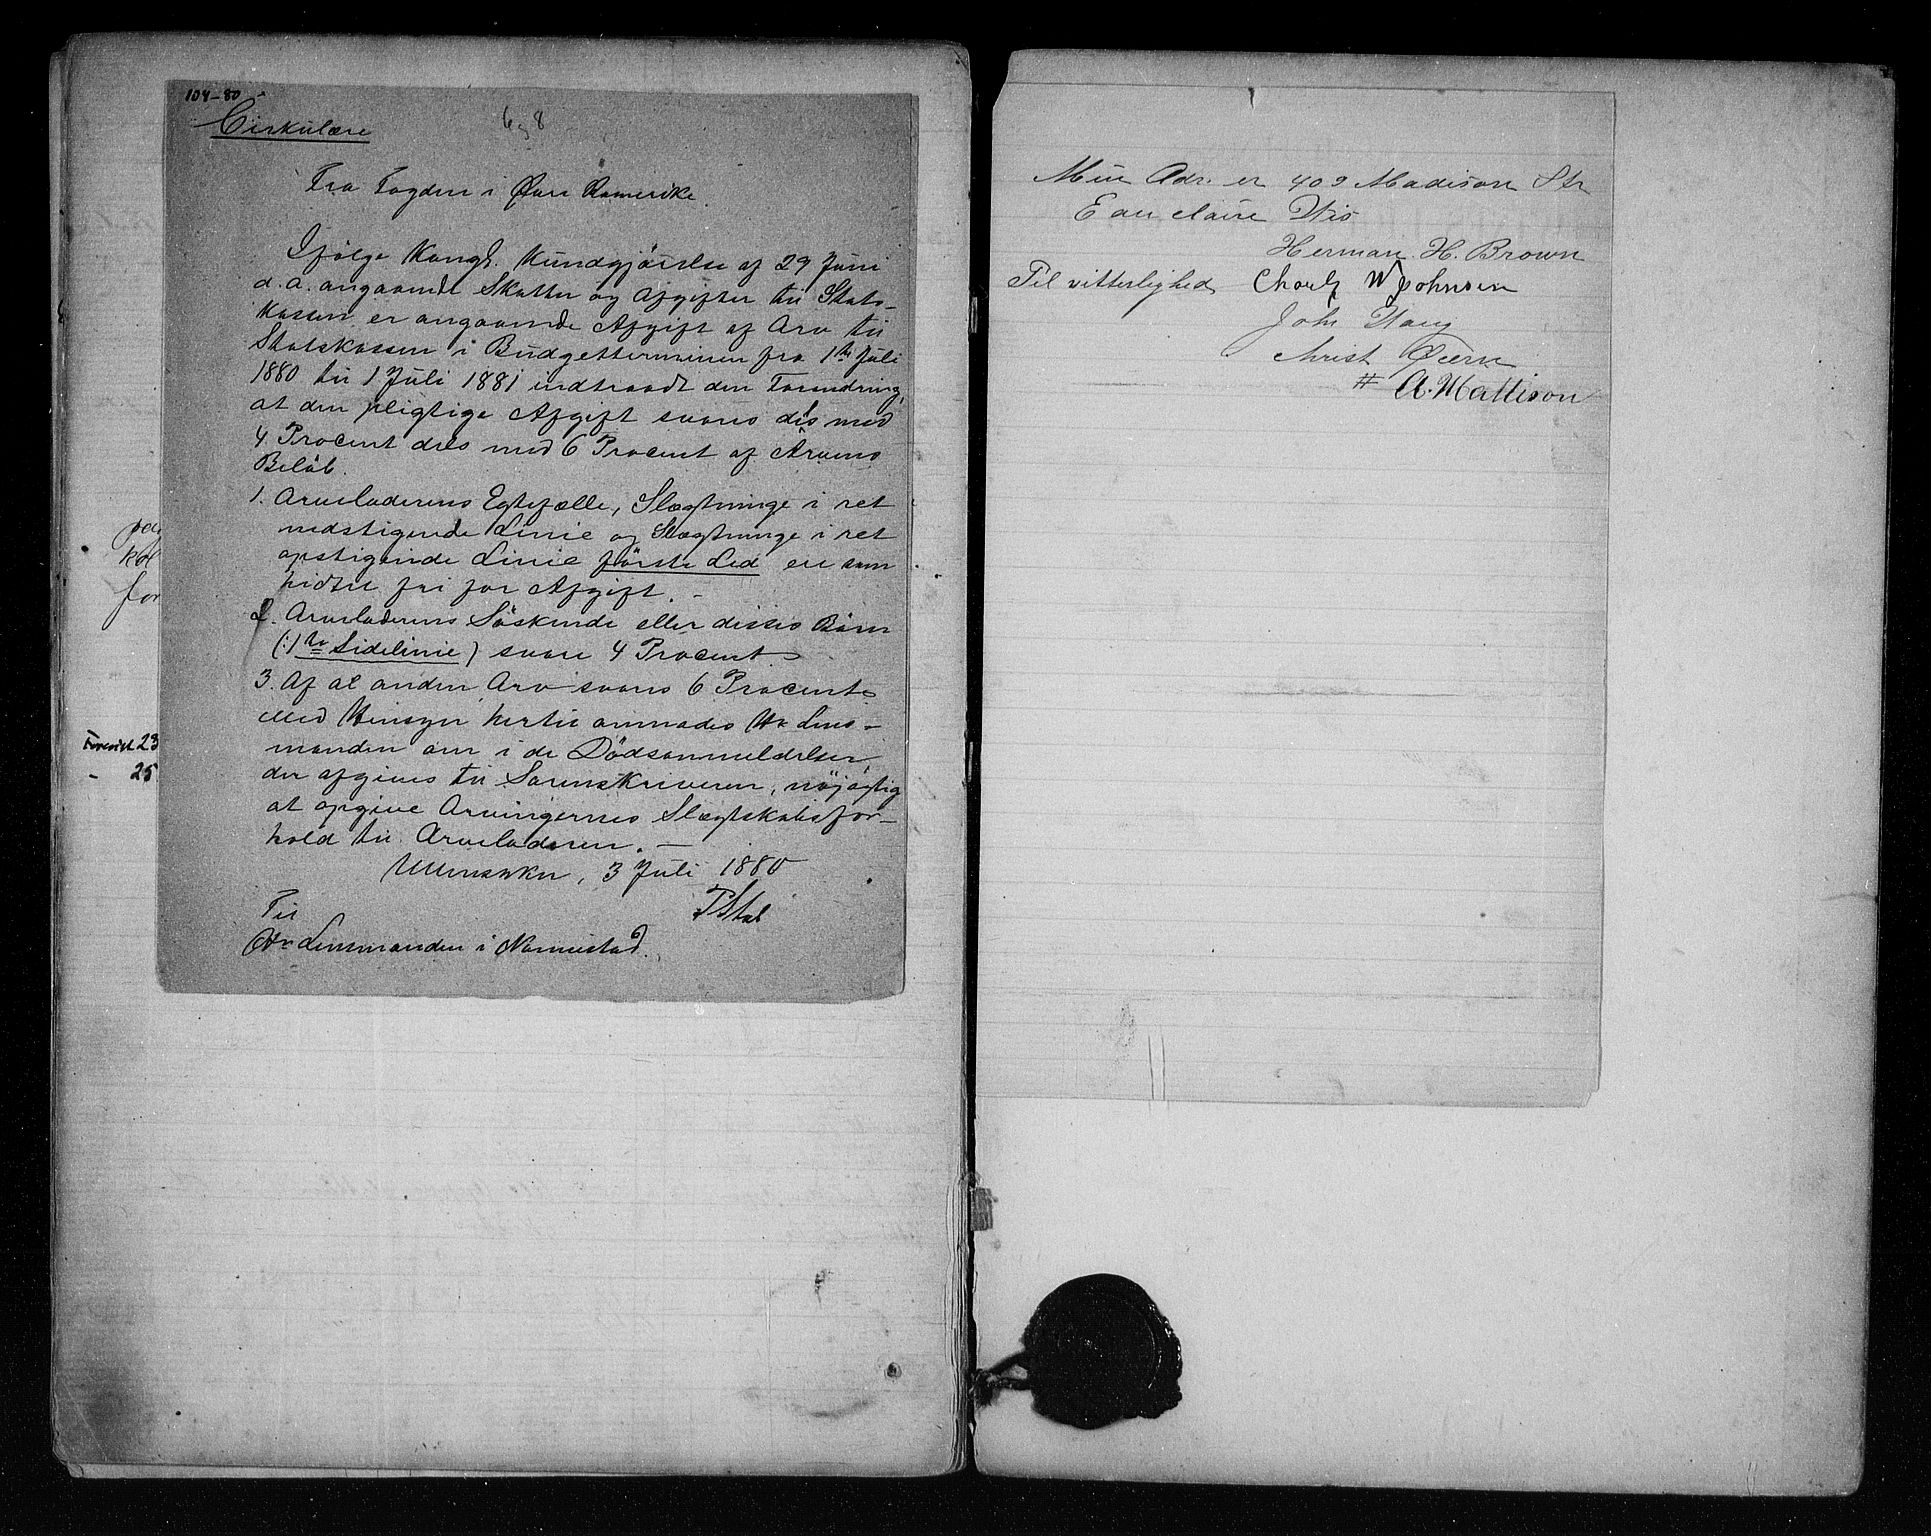 104-80
Cirkulære
6/8
Fra Fogden i Øvre Romerike.
Ifølge Kongl. Kundgjörelse af 29 Juni
d. a. angaaende Skatter og Afgifter til Stats-
kassen er angaaende Afgift af Arv til
Statskassen i Budgetterminen fra 1ste Juli
1880 til 1 Juli 1881 indtraadt den Forandring,
at den pligtige Afgift svares dels med
4 Procent dels med 6 Procent af Arvens
Belöb.
1. Arveladerens Egtefælle, Slægtninge i ret
nedstigende Linie og Slægtninge i ret
opstigende Linie förste Led ere som
hidtil fri for Afgift. -
2. Arveladerens Söskende eller disses Börn
(: 1ste Sidelinie) svare 4 Procent.
3. Af al anden Arv svares 6 Procent.
Med Hensyn hertil anmodes Hr Lens-
manden om i de Dödsanmeldelser,
der afgives til Sorenskriveren, nöjagtig
at opgive Arvingernes Slægtskabsfor-
hold til Arveladeren. -
Ullensaker, 3 Juli 1880
Til
Hr Lensmanden i Nannestad.
paa
kal
for
Forevist 23
- 25
Min Adr. er 409 Madison Str
Eau claire Wis
Herman H. Brown
Til vitterlighed Charly W Johnsen
John Haug
Christ Øiern
# A. Mattison